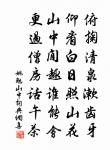 俯掬清泉漱齿牙
仰看白日照山花
山中闲趣谁能会
更过僧房话午茶
姚勉山中闲与偶书